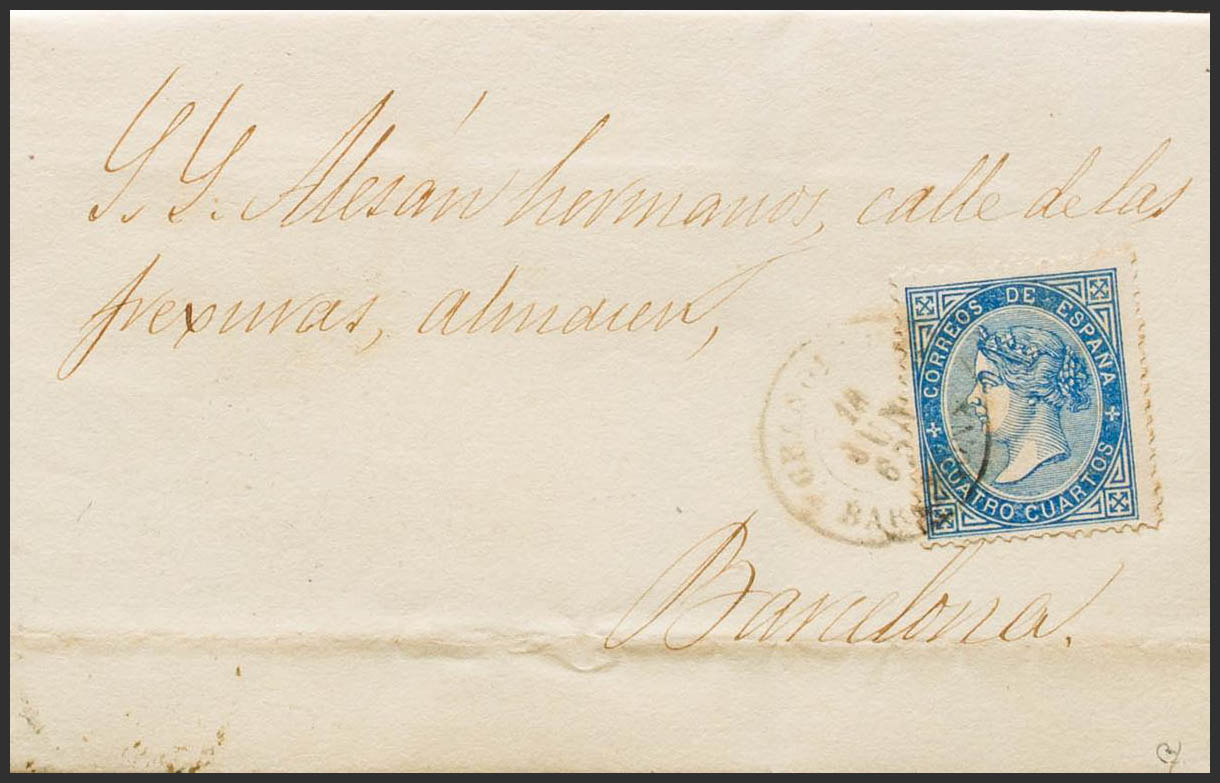 S. S. Alesán hermanos, calle de las
frexuras, almacen,
CORREOS DE ESPAÑA
CUATRO CUARTOS
18
JUN
Barcelona.